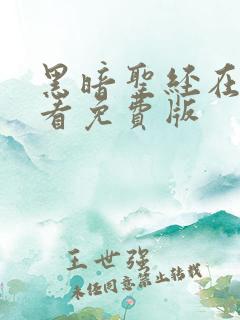 黑暗聖經在
看免費版
王世强
未经同意禁止转载